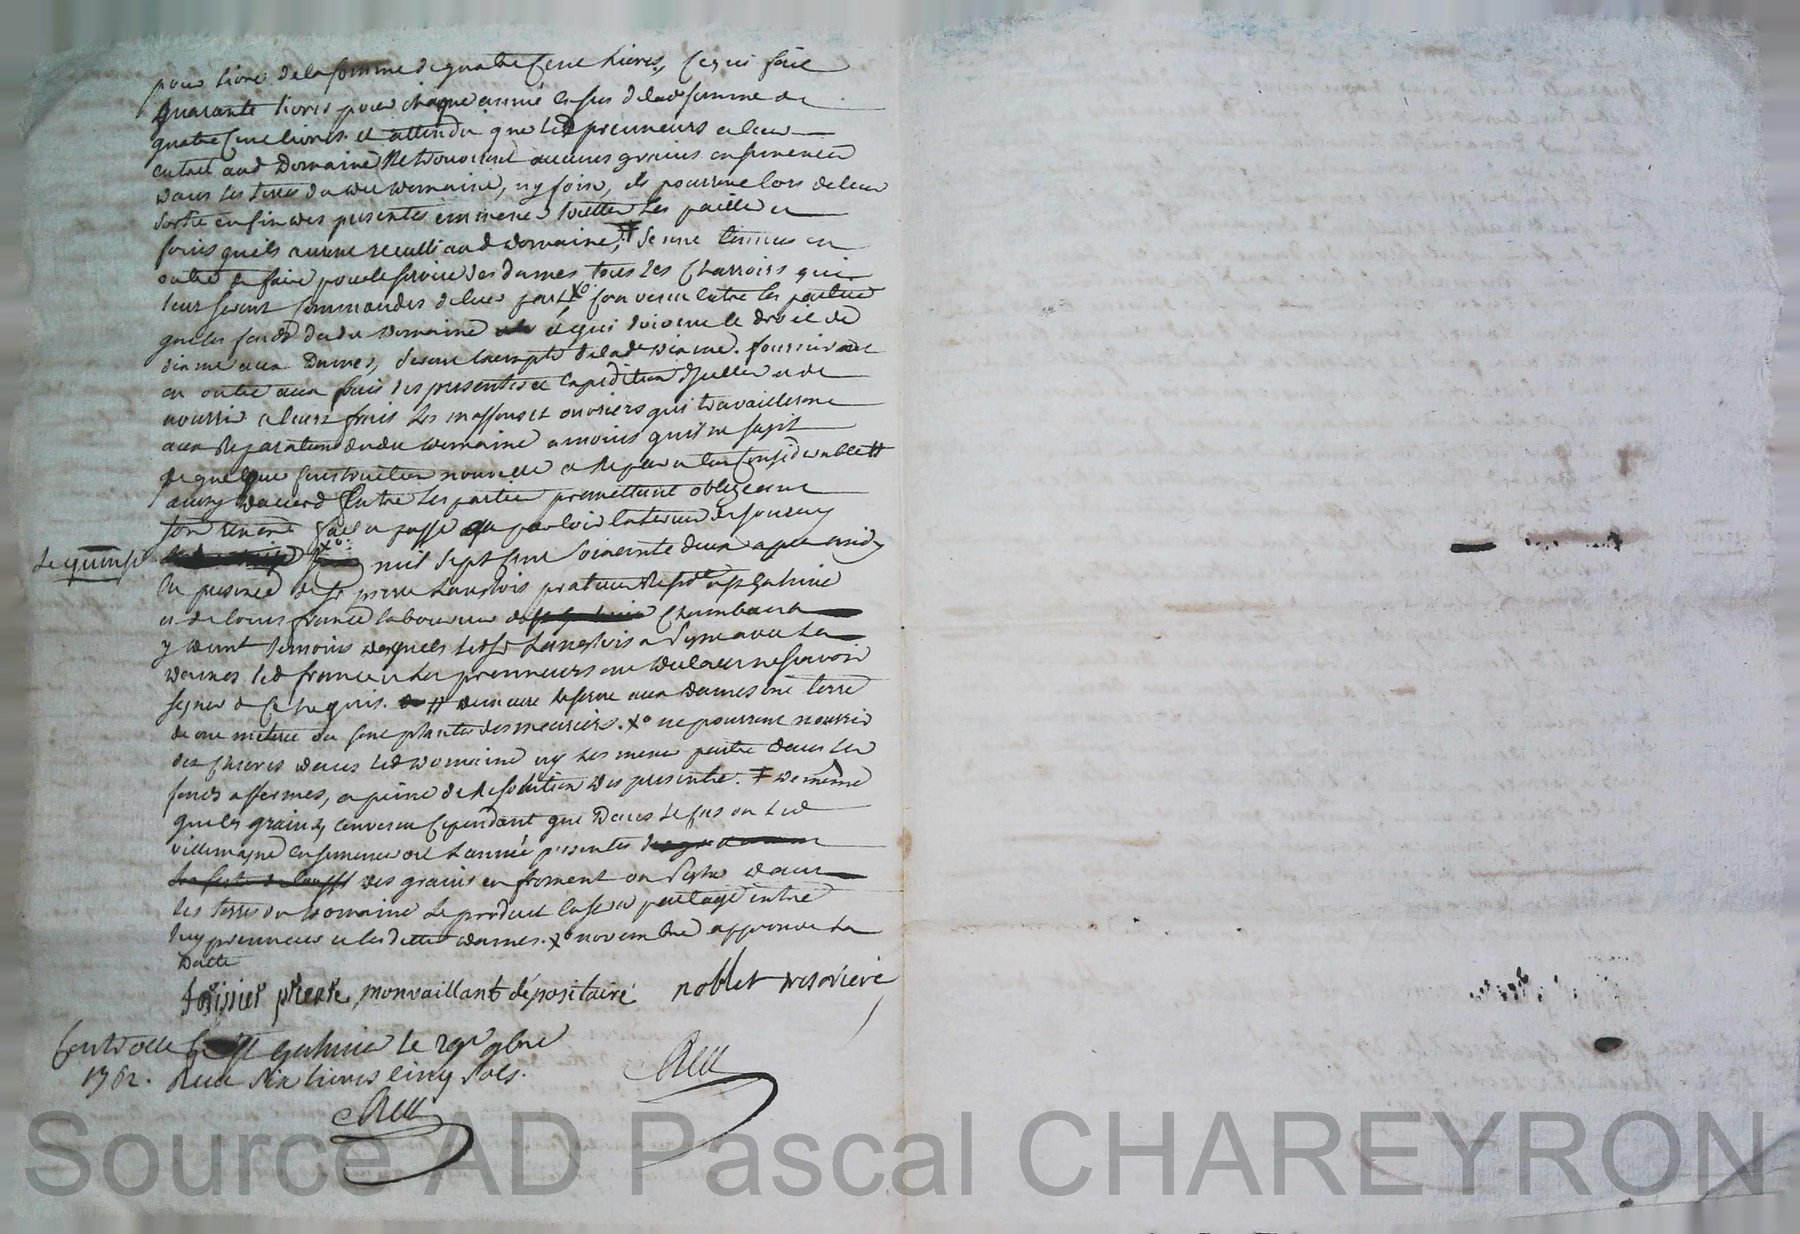 pour livre de la somme de quatre cent livres, ce qui fait
quarante livres pour chaque année en sus de lad somme de
quatre cent livres. et attendu que led prenneurs a leur
entrée aud Domaine ne trouvoient aucuns grains ensemencés
dans les terres du dit domaine, ny foin, ils pourront lors de leur
sortie en fin des presentes emmener toutes les pailles et
foins quils auront receulli aud domaine, ǂ seront tennus en
outre de faire pour le service des dames tous les charrois qui
leur seront commandés de leur part xo convenu entre les parties
que les fonds dudit domaine et qui doivent le droit de
dixme aux Dames, seront exempts de lade dixme. fourniront
en outre aux frais des presentes et expedition dycelles et de
nourrir a leurs frais les massons et ouvriers qui travailleront
aux reparations dudit domaine a moins quil ne sagit
de quelque construction nouvelle a reparation considerable #
ainsy daccord entre les parties promettant obligeant
fait et passé au parloir
le quinse mil sept cent soixante deux apres midy
en presence de sr pierre Langlois praticien a st Galmier
et de louis france laboureur Chambaud
y temoins desquels led sr Langlois a signé avec les
dames led france et les prenneurs ont declaré ne scavoir
signer de ce requis. # demeure reservé aux dames une terre
ou sont plantés des meuriers. xo ne pourront nourrir
des chievres dans led domaine ny les mener paitre dans les
fonds affermés, a peine de resolution des presentes. ǂ de même
que les grains, convenu cependant que dans le cas ou led
villemagne ensemenceroit l'année presente
des grains en froment ou seigle dans
les terres du domaine le produit en sera partagé entre
luy prenneur et les dittes dames. xo novembre approuvé la
datte
forissier monvaillant dépositaire noblet tresorière
Controllé a St Galmier le 29e 9bre
1762. Reçu six livres cinq sols.
Source AD Pascal CHAREYRON